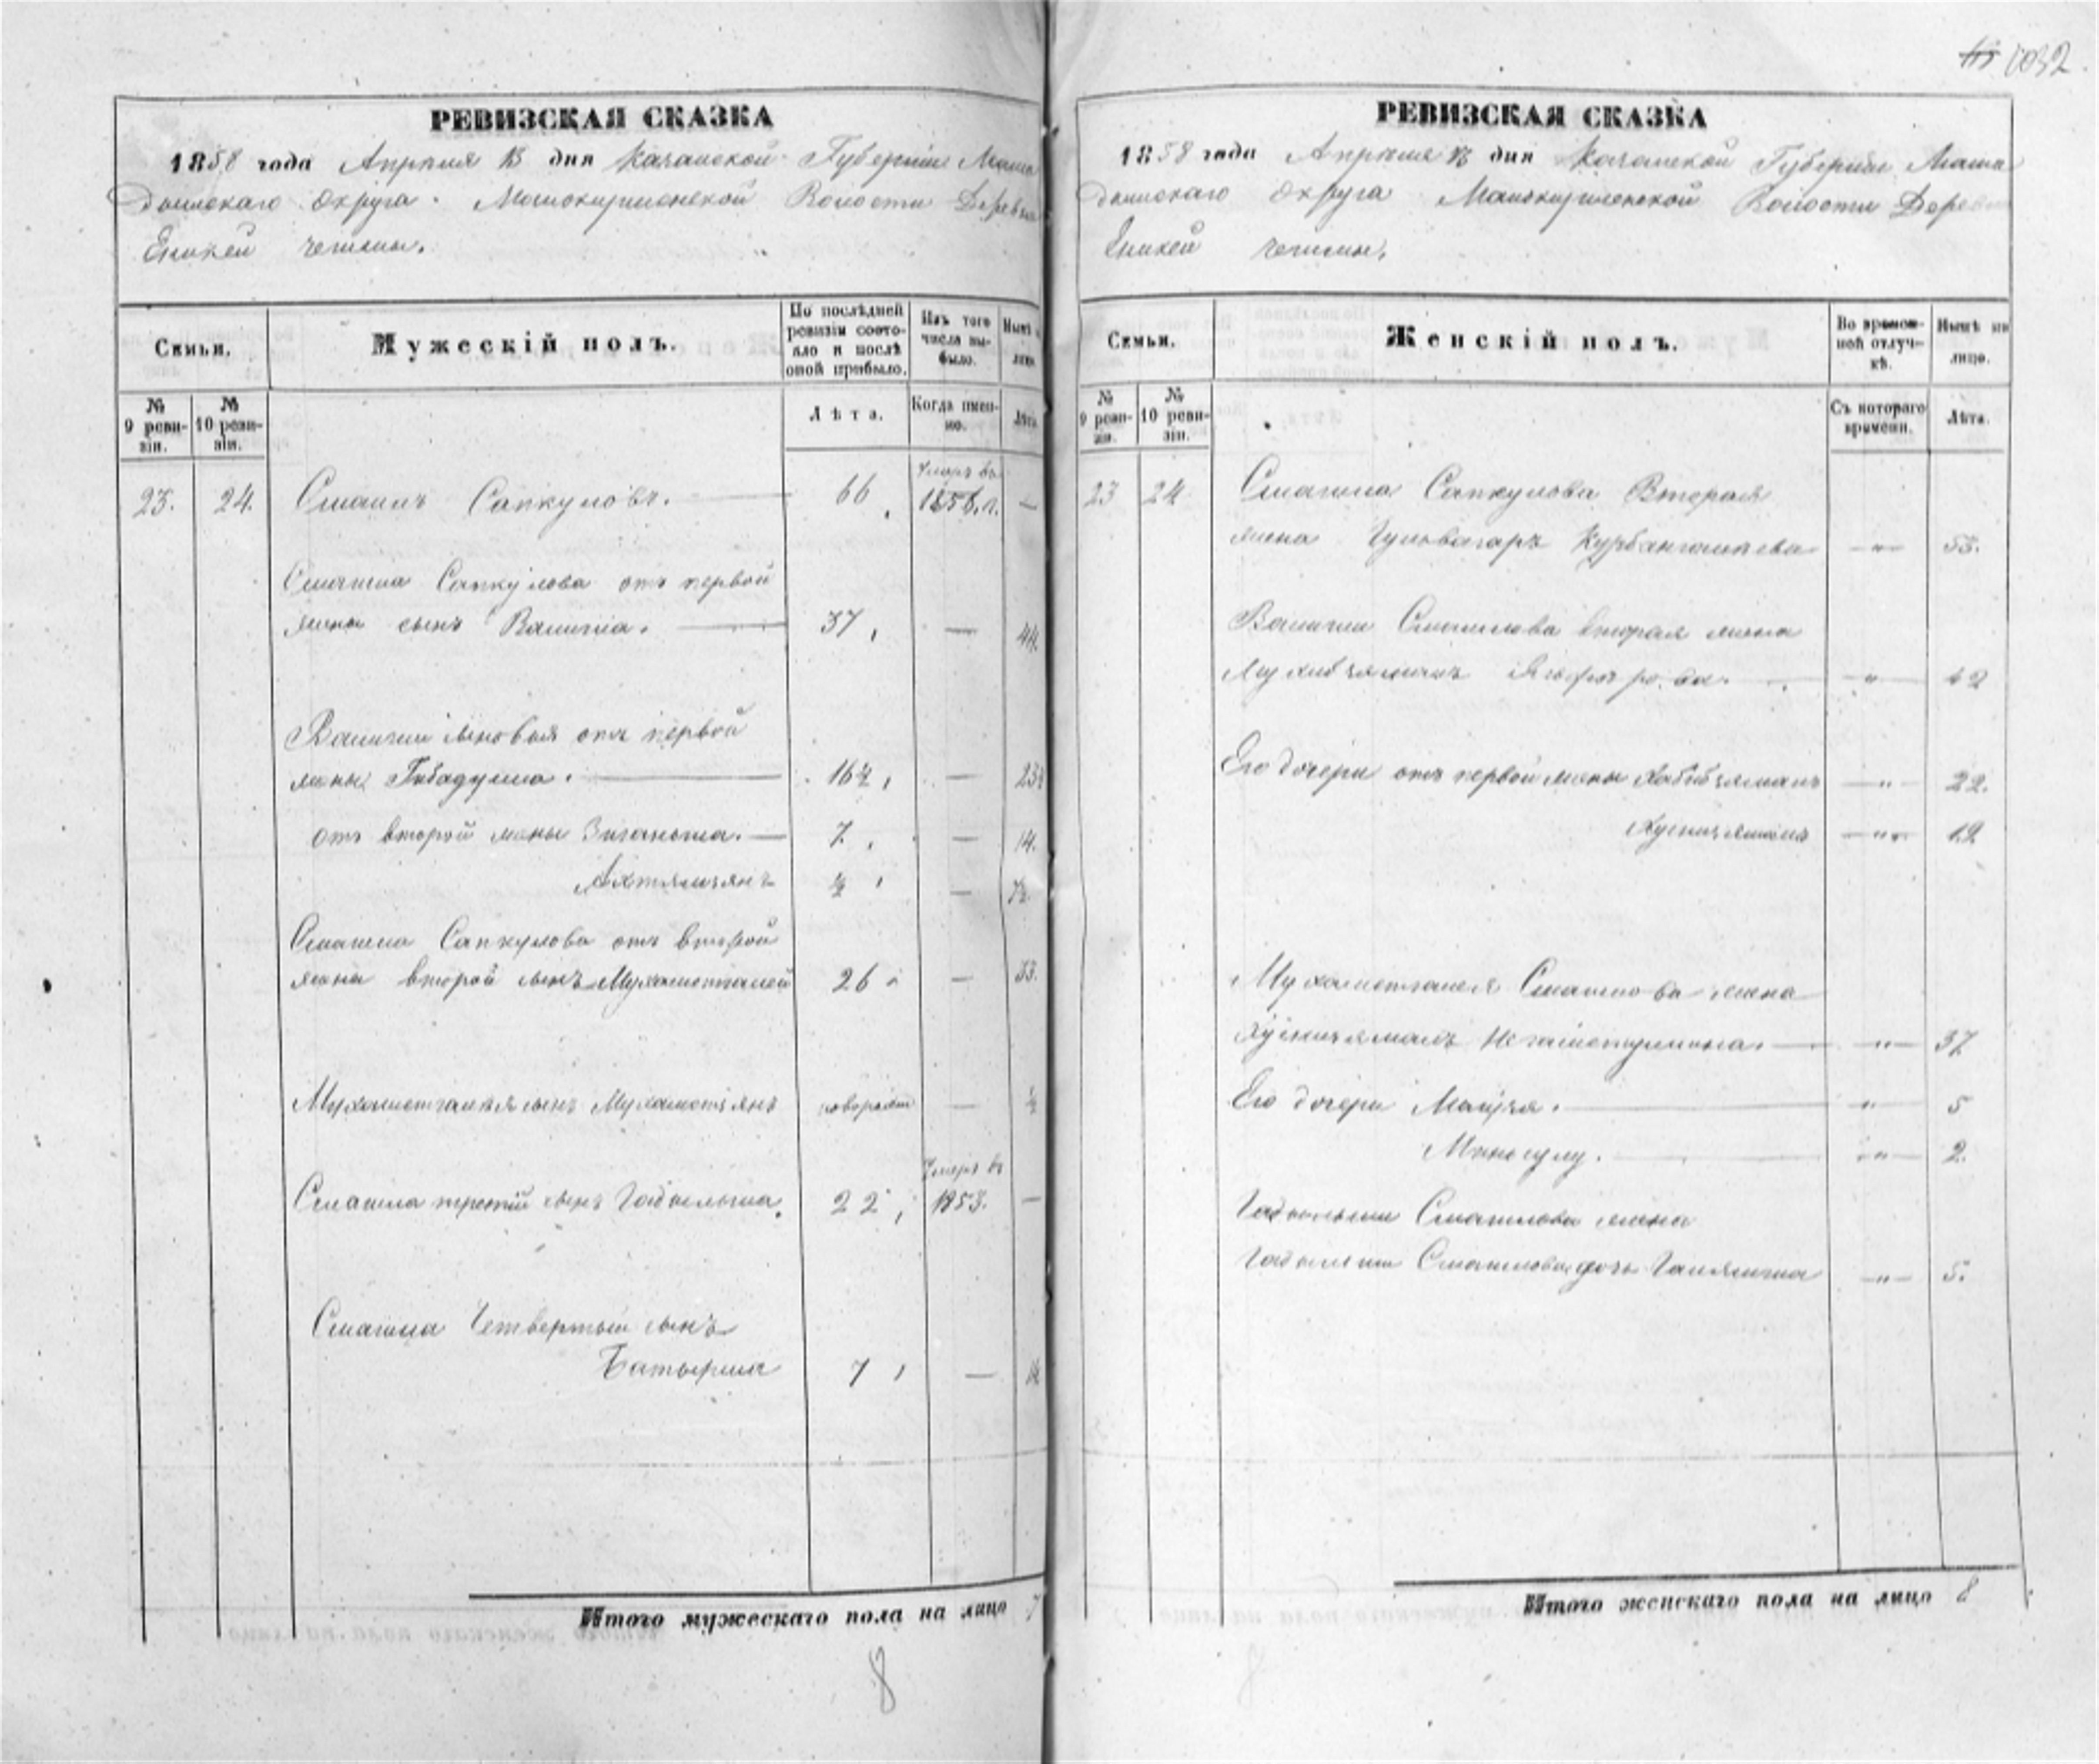 1032
РЕВИЗСКАЯ СКАЗКА
1858 года Апреля 13 дня Казанской Губернии Мама
дышскаго Округа. Волости Деревни
Еникей чешмы.
Семьи.
Мужескій полъ.
По послѣдней ревизіи состояло и послѣ оной прибыло.
Изъ того числа выбыло.
Нынѣ на лицо.
№ 9 ревизіи.
№ 10 ревизіи.
Лѣта.
Когда именно.
Лѣта.
23. 24. Смаилъ Сапкуловъ. 66 Умеръ въ 1856. г. —
Смаила Сапкулова отъ первой
жены сынъ Валиша. 37 — 44.
Валиши сыновья отъ первой
жены Гибадулла. 16½ — 23½
отъ второй жены Зиганша. 7. — 14.
Ахтямзянъ ½ — 7½.
Смаила Сапкулова отъ второй
жены второй сынъ Мухаметгалей 26 — 33.
Мухаметгалея сынъ Мухаметзянъ новорожд — ½
Смаила третій сынъ Гадыльша. 22 Умеръ въ 1853. —
Смаила Четвертый сынъ
Батырша 7 — 14
Итого мужескаго пола на лицо 7
8
РЕВИЗСКАЯ СКАЗКА
1858 года Апреля 13 дня Казанской Губернии Мама
дышскаго Округа Волости Деревни
Еникей чешмы.
Семьи.
Женскій полъ.
Во временной отлучкѣ.
Нынѣ на лицо.
№ 9 ревизіи.
№ 10 ревизіи.
Съ котораго времени.
Лѣта.
23 24 Смаила Сапкулова Вторая
жена Гульбагаръ Курбангалеева — " — 55.
Валиши Смаилова вторая жена
— " — 42
Его дочери отъ первой жены Хабибзямалъ — " — 22.
Хуснизямалъ — " — 12
Мухаметгалея Смаилова жена
Хуснизямалъ — " — 37
Его дочери — " — 5
Минсулу. — " — 2.
Гадыльши Смаилова жена
Гадыльши Смаилова дочь — " — 5.
Итого женскаго пола на лицо 8